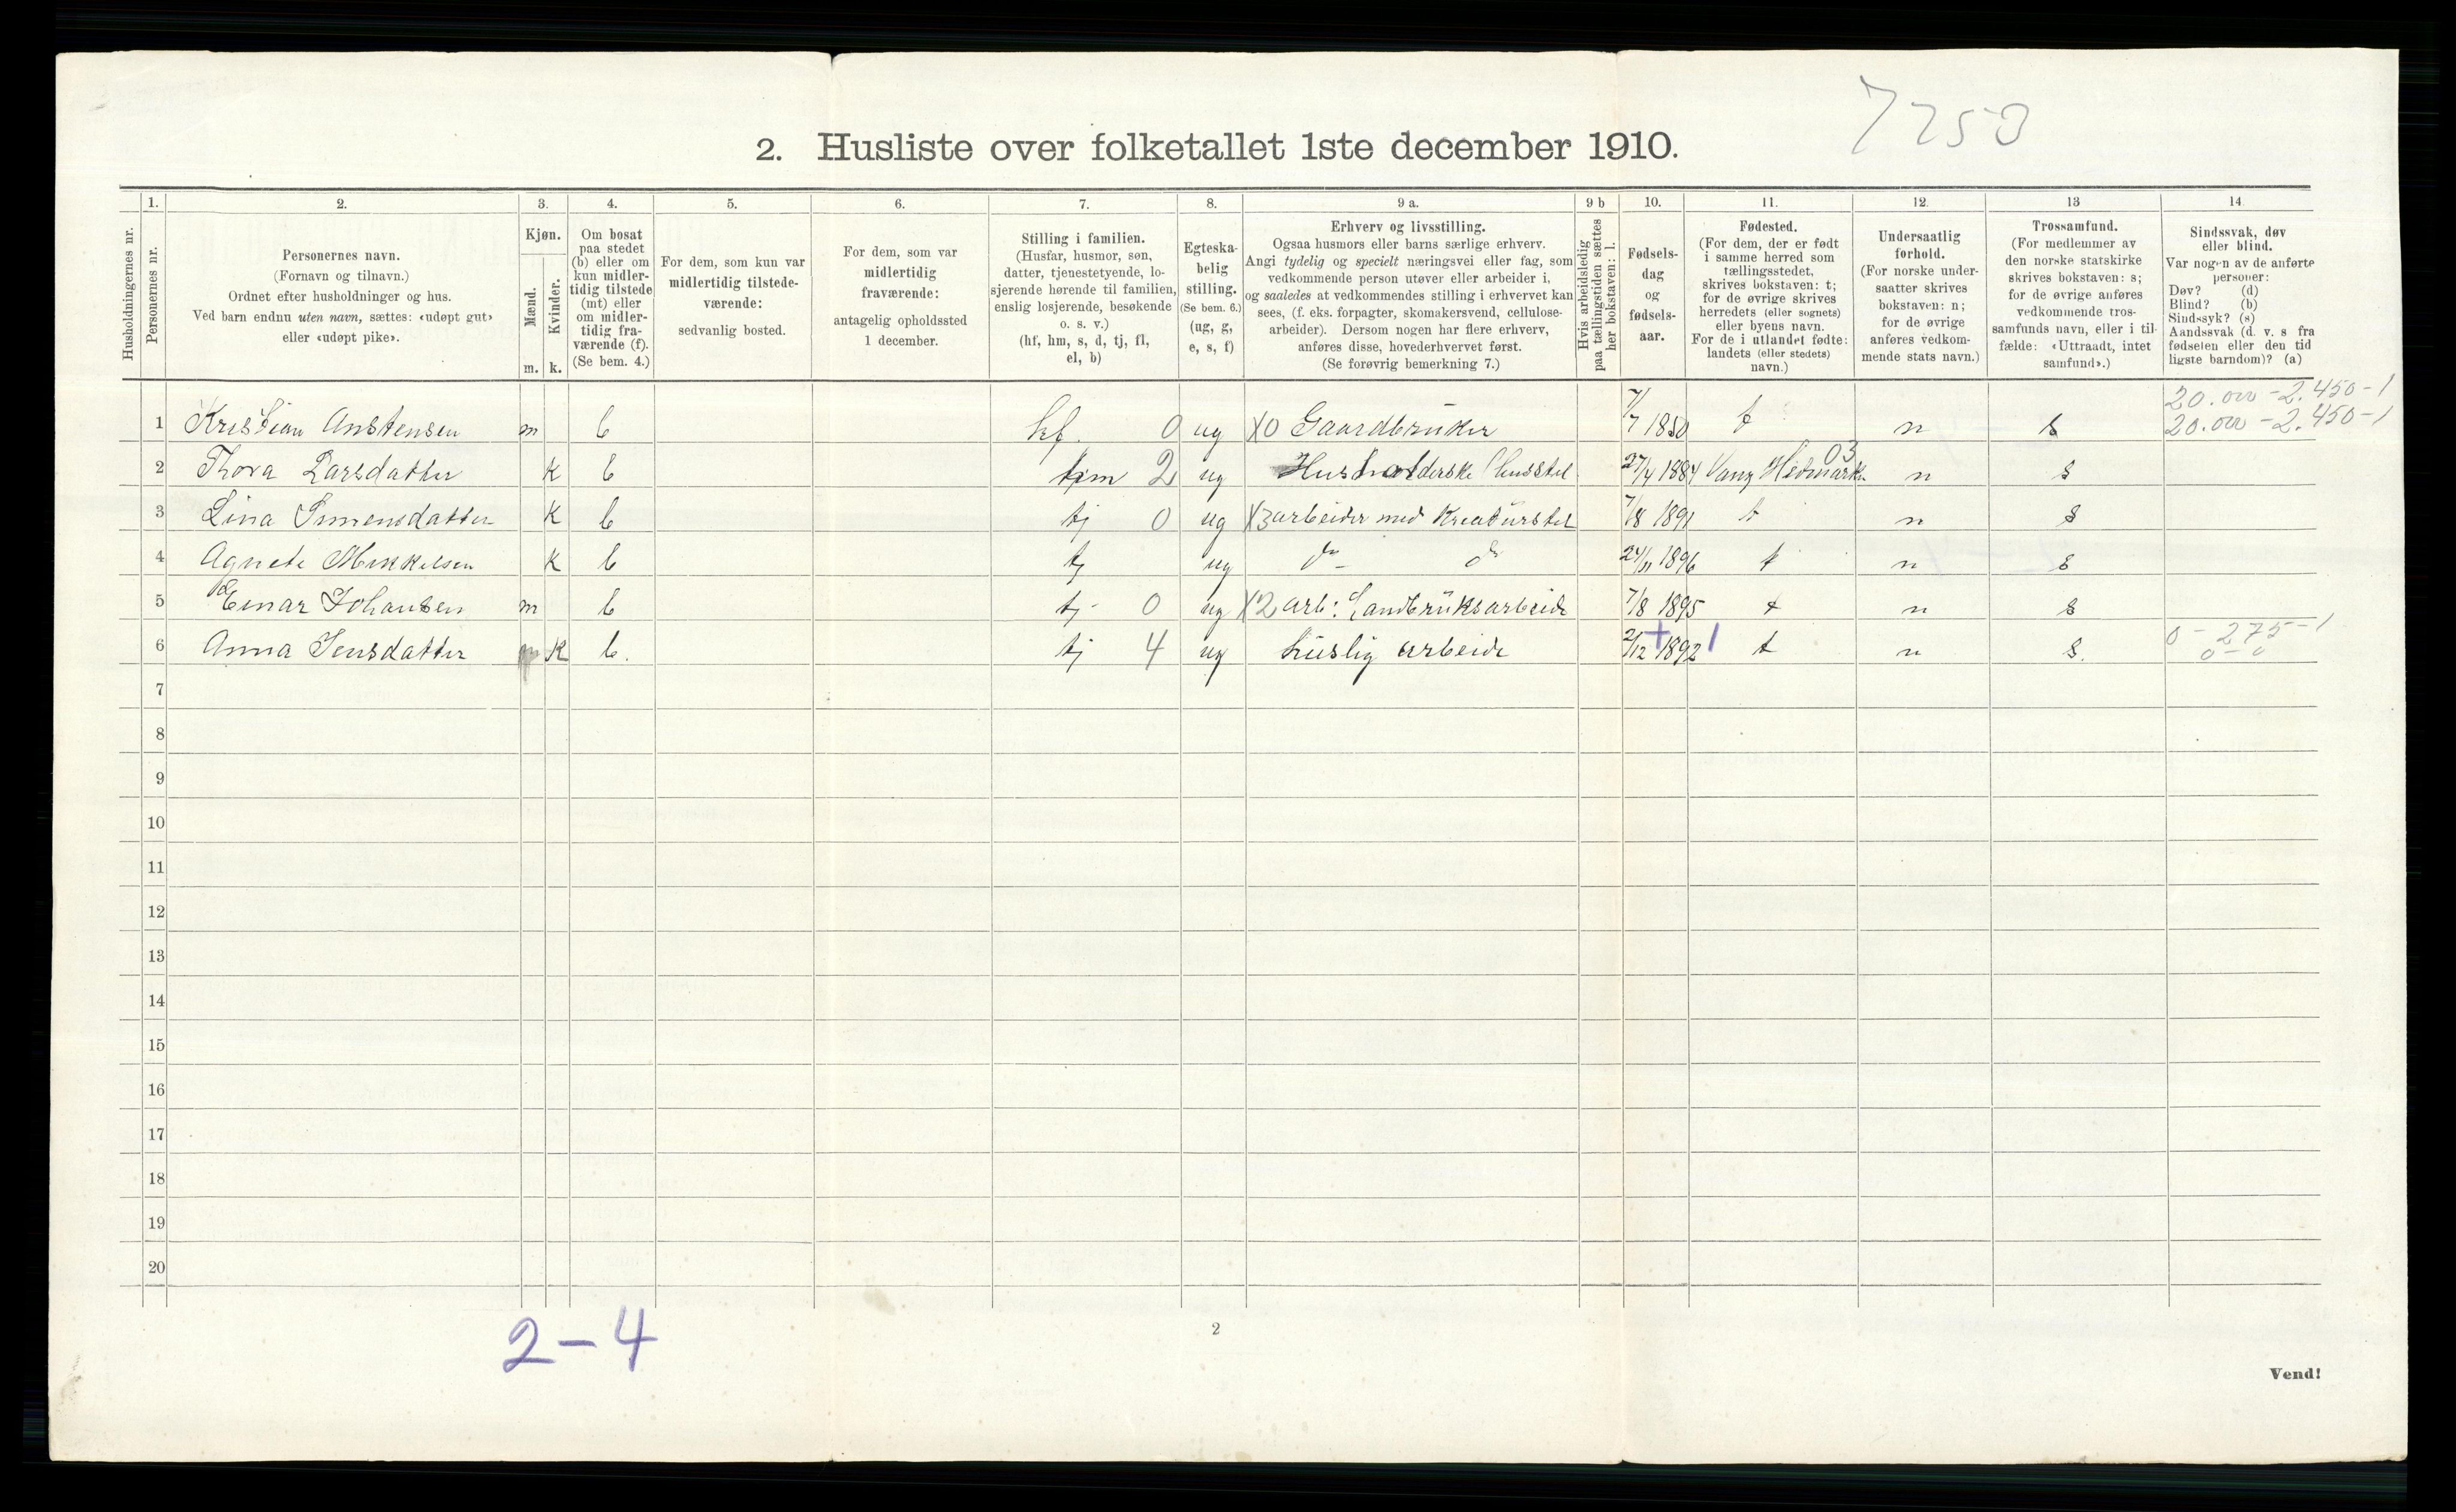 7250
2. Husliste over folketallet 1ste december 1910.
Husholdningernes nr.
1. Personernes nr.
2. Personernes navn.
(Fornavn og tilnavn.)
Ordnet efter husholdninger og hus.
Ved barn endnu uten navn, sættes: «udøpt gut»
eller «udøpt pike».
3. Kjøn.
Mænd. m.
Kvinder. k.
4. Om bosat
paa stedet
(b) eller om
kun midler-
tidig tilstede
(mt) eller
om midler-
tidig fra-
værende (f).
(Se bem. 4.)
5. For dem, som kun var
midlertidig tilstede-
værende:
sedvanlig bosted.
6. For dem, som var
midlertidig
fraværende:
antagelig opholdssted
1 december.
7. Stilling i familien.
(Husfar, husmor, søn,
datter, tjenestetyende, lo-
sjerende hørende til familien,
enslig losjerende, besøkende
o. s. v.)
(hf, hm, s, d, tj, fl,
el, b)
8. Egteska-
belig
stilling.
(Se bem. 6.)
(ug, g,
e, s, f)
9 a. Erhverv og livsstilling.
Ogsaa husmors eller barns særlige erhverv.
Angi tydelig og specielt næringsvei eller fag, som
vedkommende person utøver eller arbeider i,
og saaledes at vedkommendes stilling i erhvervet kan
sees, (f. eks. forpagter, skomakersvend, cellulose-
arbeider). Dersom nogen har flere erhverv,
anføres disse, hovederhvervet først.
(Se forøvrig bemerkning 7.)
9 b Hvis arbeidsledig
paa tællingstiden sættes
her bokstaven: l.
10. Fødsels-
dag
og
fødsels-
aar.
11. Fødested.
(For dem, der er født
i samme herred som
tællingsstedet,
skrives bokstaven: t;
for de øvrige skrives
herredets (eller sognets)
eller byens navn.
For de i utlandet fødte:
landets (eller stedets)
navn.)
12. Undersaatlig
forhold.
(For norske under-
saatter skrives
bokstaven: n;
for de øvrige
anføres vedkom-
mende stats navn.)
13 Trossamfund.
(For medlemmer av
den norske statskirke
skrives bokstaven: s;
for de øvrige anføres
vedkommende tros-
samfunds navn, eller i til-
fælde: «Uttraadt, intet
samfund».)
14 Sindssvak, døv
eller blind.
Var nogen av de anførte
personer:
Døv? (d)
Blind? (b)
Sindssyk? (s)
Aandssvak (d. v. s fra
fødselen eller den tid
ligste barndom)? (a)
20.000 - 2.450 - 1
1 Kristian Anstensen m b hf. 0 ug X0 Gaardbruker 7/7 1850 t n s 20.000 - 2.450 - 1
2 Thora Larsdatter k b 2 ug Husholderske husstel 27/4 1884 Vang Hedmarken 03 n s
3 Lina Simensdatter k b tj 0 ug X3 arbeider med Kreaturstel 7/8 1891 t n s
4 Agnete Mikkelsen k b tj ug do do 24/11 1896 t n s
5 Einar Johansen m b tj 0 ug X2 arb: Landbruksarbeide 7/8 1895 t n s
6 Anna Jensdatter k b. tj 4 ug huslig arbeide 2/12 1892 t n s. 0 - 275 - 1
0 - 0
7
8
9
10
11
12
13
14
15
16
17
18
19
20
2 - 4
2
Vend!